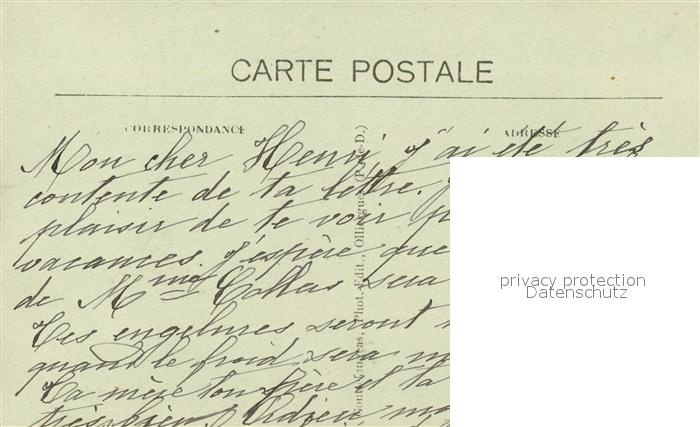 CARTE POSTALE
CORRESPONDANCE
ADRESSE
Mon cher Henri J'ai été très
contente de ta lettre.
plaisir de te voir
vacances. J'espère que
de Mme sera
Tes engelures seront
quand le froid sera
Ta mère ton frère et ta
très bien. Adieu
Phot.-Edit., Olliergues (P.-de-D.)
privacy protection
Datenschutz